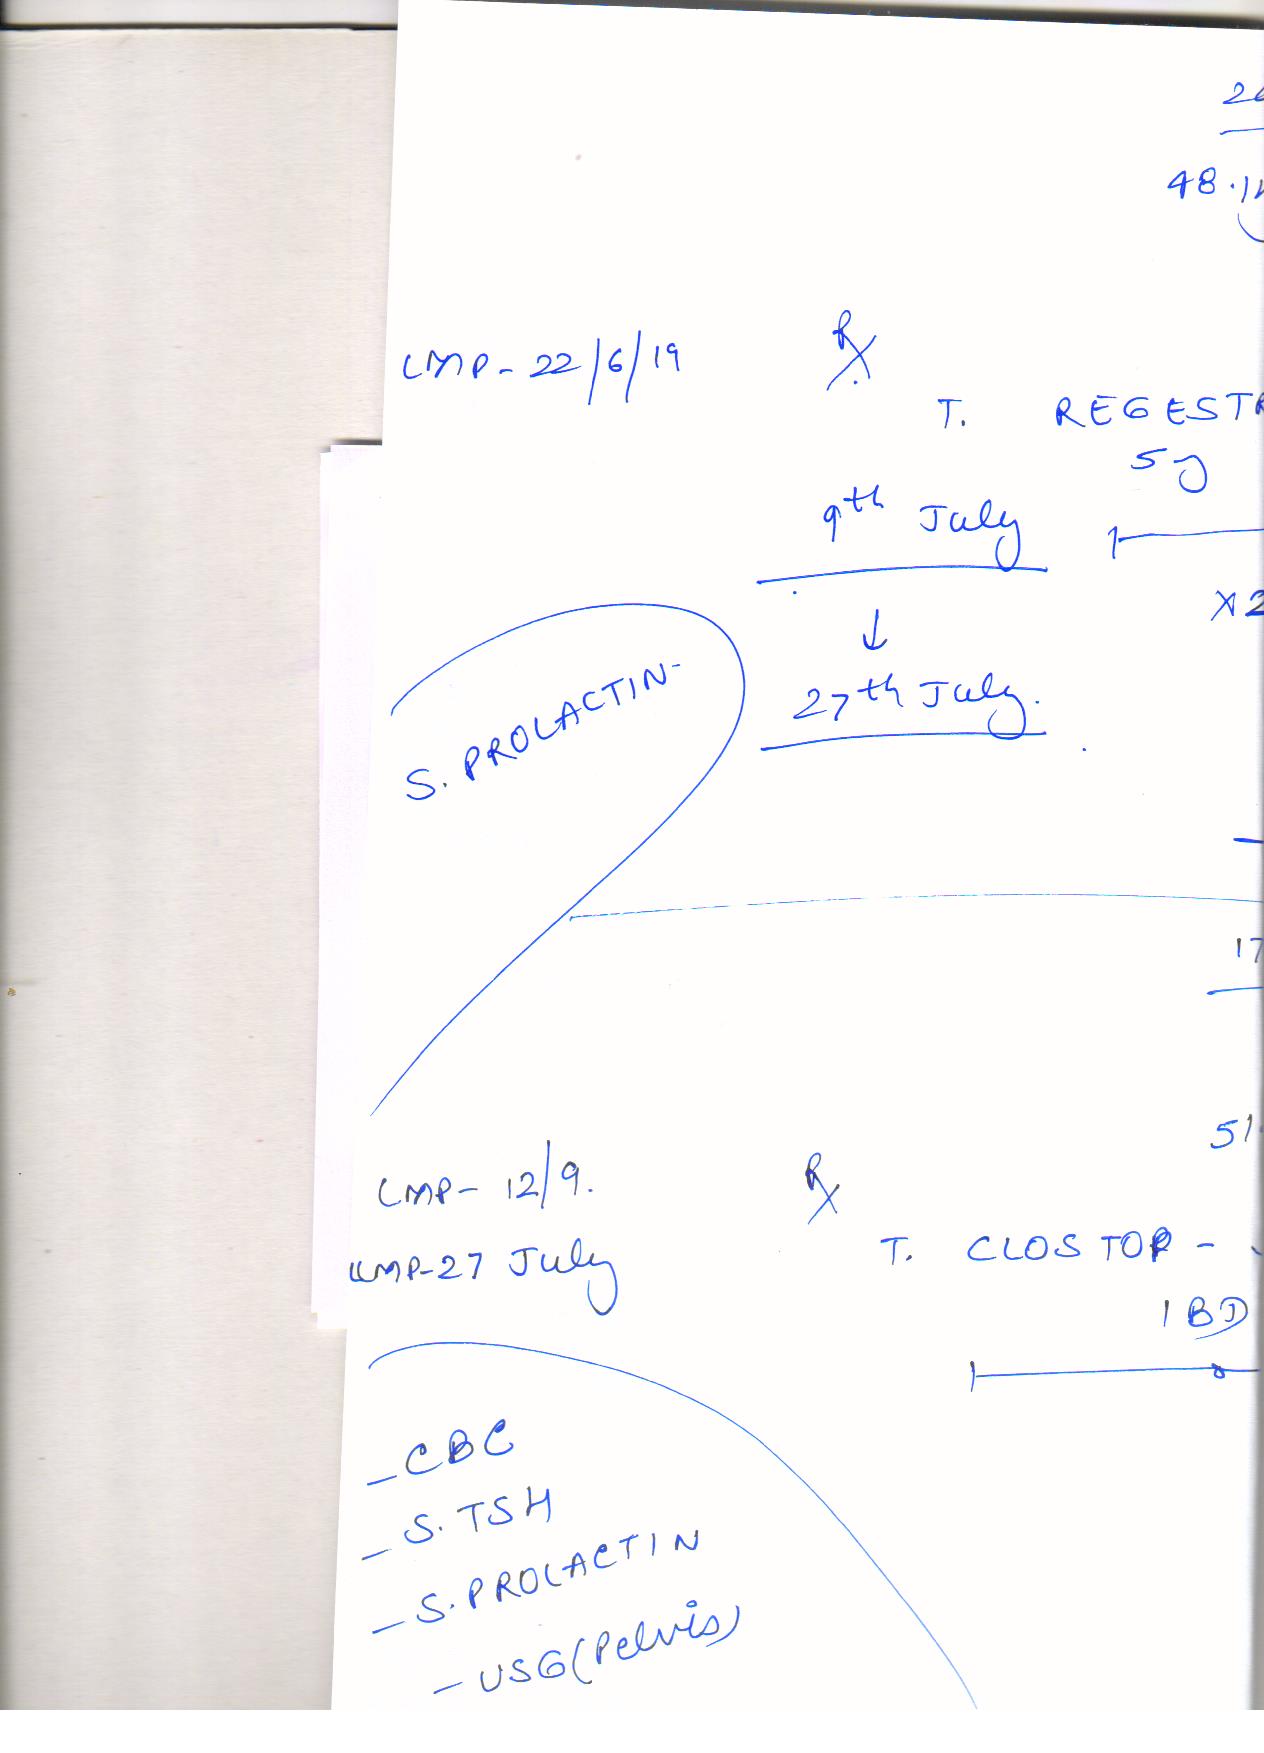 26
48.1
LMP - 22/6/19
Rx
T. REGESTR
5
9th July
↓
27th July.
x2
S. PROLACTIN-
17
51.
LMP - 12/9.
LLMP-27 July
Rx
T. CLOSTOP -
1 BD
- CBC
- S. TSH
- S. PROLACTIN
- USG (Pelvis)